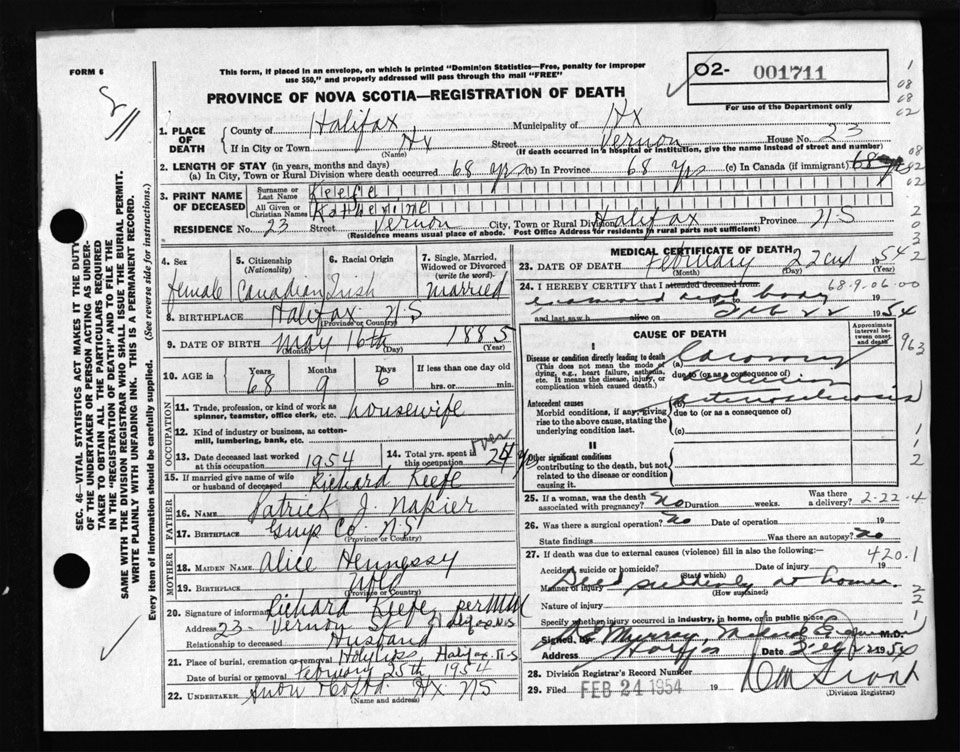 FORM 6
This form, if placed in an envelope, on which is printed "Dominion Statistics—Free, penalty for improper
use $50," and properly addressed will pass through the mail "FREE"
02- 001711
For use of the Department only
PROVINCE OF NOVA SCOTIA—REGISTRATION OF DEATH
1. PLACE OF DEATH
County of Halifax Municipality of Hx
If in City or Town Hx Street Vernon House No. 23
(Name) (If death occurred in a hospital or institution, give the name instead of street and number)
2. LENGTH OF STAY (in years, months and days)
(a) In City, Town or Rural Division where death occurred 68 yrs (b) In Province 68 Yrs (c) In Canada (if immigrant) 68 yrs
3. PRINT NAME OF DECEASED
Surname or Last Name Keefe
All Given or Christian Names Katherine
RESIDENCE No. 23 Street Vernon City, Town or Rural Division Halifax Province N.S
(Residence means usual place of abode. Post Office Address for residents in rural parts not sufficient)
4. Sex
female
5. Citizenship (Nationality)
Canadian
6. Racial Origin
Irish
7. Single, Married, Widowed or Divorced (write the word)
Married
8. BIRTHPLACE Halifax N.S
(Province or Country)
9. DATE OF BIRTH May 16th 1885
(Month) (Day) (Year)
10. AGE in Years 68 Months 9 Days 6 If less than one day
hrs. or min.
OCCUPATION
11. Trade, profession, or kind of work as
spinner, teamster, office clerk, etc. housewife
12. Kind of industry or business, as cotton-
mill, lumbering, bank, etc.
13. Date deceased last worked
at this occupation 1954
14. Total yrs. spent in
this occupation over 24 yrs
15. If married give name of wife
or husband of deceased Richard Keefe
FATHER
16. Name Patrick J. Napier
17. Birthplace Guys Co. N.S
(Province or Country)
MOTHER
18. MAIDEN NAME Alice Hennessy
19. BIRTHPLACE Nfld
(Province or Country)
20. Signature of informant Richard Keefe per
Address 23 Vernon St Halifax NS
Relationship to deceased Husband
21. Place of burial, cremation or removal Halifax N.S
Date of burial or removal February 25th 1954
22. UNDERTAKER Hx NS
(Name and address)
MEDICAL CERTIFICATE OF DEATH
23. DATE OF DEATH February 22nd 1954
(Month) (Day) (Year)
24. I HEREBY CERTIFY that I attended deceased from: 68-9-06-00
examined dead body to 19
and last saw h alive on Feb 22 1954
CAUSE OF DEATH
Approximate interval between onset and death
I
Disease or condition directly leading to death
(This does not mean the mode of
dying, e.g., heart failure, asthenia,
etc. It means the disease, injury, or
complication which caused death.)
(a) Coronary
due to (or as a consequence of)
occlusion
Antecedent causes
Morbid conditions, if any, giving
rise to the above cause, stating the
underlying condition last.
(b) Arteriosclerosis
due to (or as a consequence of)
(c)
II
Other significant conditions
contributing to the death, but not
related to the disease or condition
causing it.
25. If a woman, was the death
associated with pregnancy? No Duration weeks. Was there
a delivery? 2-22-4
26. Was there a surgical operation? no Date of operation 19
State findings Was there an autopsy? no
27. If death was due to external causes (violence) fill in also the following:—
420.1
Accident, suicide or homicide? Date of injury 19
(State which)
Manner of injury Died suddenly at home.
(How sustained)
Nature of injury
Specify whether injury occurred in industry, in home, or in public place
Signed by Murray, M.D.
Address Halifax Date Feb 22 1954
28. Division Registrar's Record Number
29. Filed FEB 24 1954 19
(Division Registrar)
SEC. 46—VITAL STATISTICS ACT MAKES IT THE DUTY
OF THE UNDERTAKER OR PERSON ACTING AS UNDER-
TAKER TO OBTAIN ALL THE PARTICULARS REQUIRED
IN THE "REGISTRATION OF DEATH" AND TO FILE THE
SAME WITH THE DIVISION REGISTRAR WHO SHALL ISSUE THE BURIAL PERMIT.
WRITE PLAINLY WITH UNFADING INK. THIS IS A PERMANENT RECORD.
Every item of information should be carefully supplied. (See reverse side for instructions.)